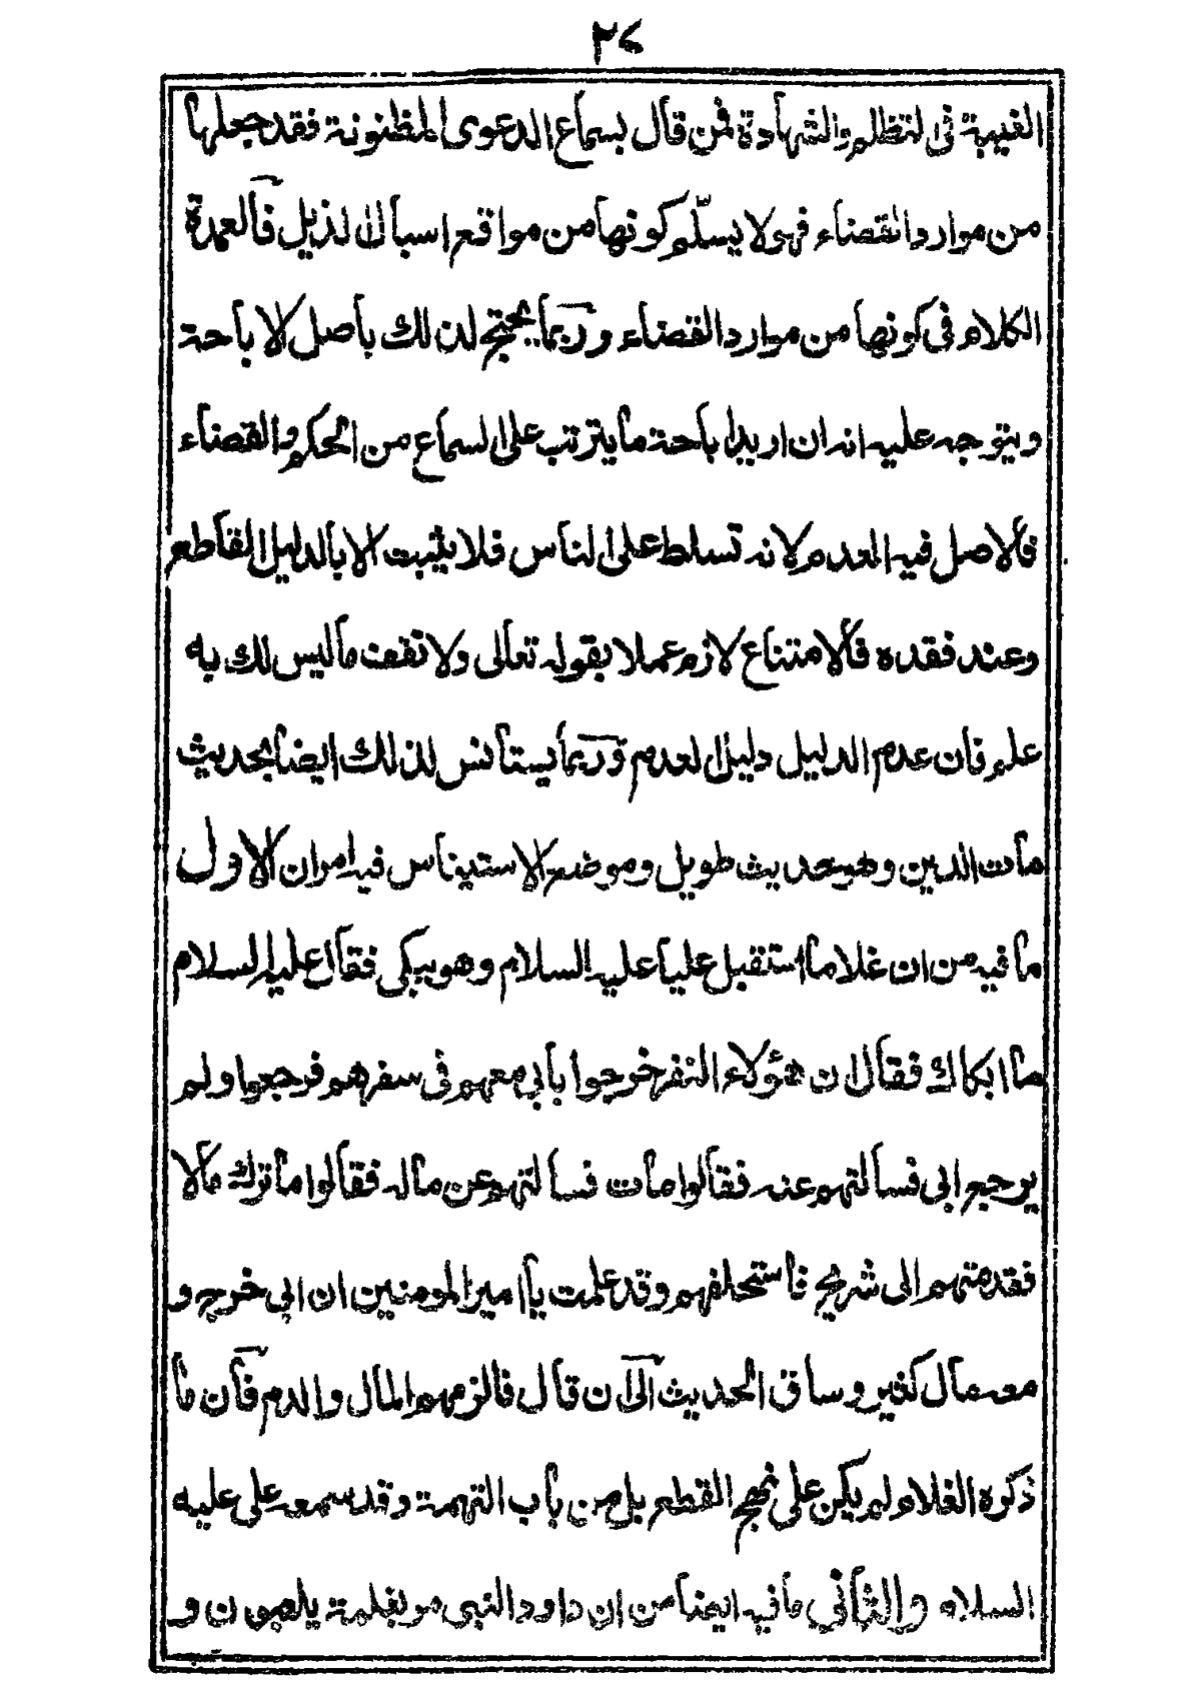 ٢٧
الغيبة فى التظلم والشهادة فمن قال بسماع الدعوى المظنونة فقد جعلها
من موارد القضاء فهى لا يسلّم كونها من مواقع اسبال الذيل فالعمدة
الكلام فى كونها من موارد القضاء وربما يحتج لذلك باصل الاباحة
ويتوجه عليه انه ان اريد اباحة ما يترتب على السماع من الحكم والقضاء
فالاصل فيه العدم لانه تسلط على الناس فلا يثبت الا بالدليل القاطع
وعند فقده فالامتناع لازم عملا بقوله تعالى ولا تقف ما ليس لك به
علم فان عدم الدليل دليل العدم وربما يستانس لذلك ايضا بحديث
مات الدين وهو حديث طويل وموضع الاستيناس فيه امران الاول
ما فيه من ان غلاما استقبل عليا عليه السلام وهو يبكى فقال عليه السلام
ما ابكاك فقال ان هؤلاء النفر خرجوا بابى معهم فى سفرهم فرجعوا ولم
يرجع ابى فسالتهم عنه فقالوا مات فسالتهم عن ماله فقالوا ما ترك مالا
فقدمتهم الى شريح فاستحلفهم وقد علمت يا امير المومنين ان ابى خرج و
معه مال كثير وساق الحديث الى ان قال فالزمهم المال والدم فان ما
ذكره الغلام لم يكن على نهج القطع بل من باب التهمة وقد سمعه على عليه
السلام والثانى ما فيه ايضا من ان داود النبى مر بغلمة يلعبون و